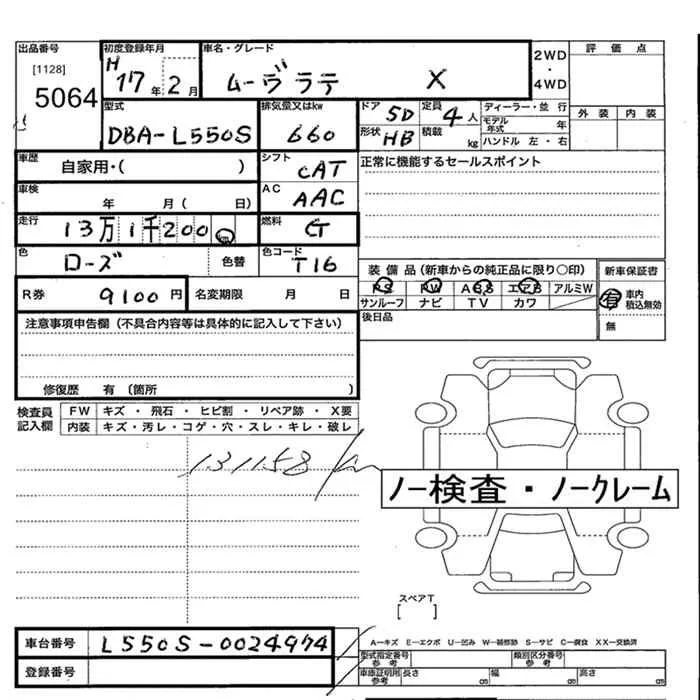 出品番号
[1128]
5064
初度登録年月
H 17年 2月
車名・グレード
ムーヴラテ X
2WD・4WD
評価点
外装 内装
型式
DBA-L550S
排気量又はkw
660
ドア 5D
定員 4人
形状 HB
積載 kg
ディーラー・並行
モデル年式 年
ハンドル 左・右
車歴 自家用・( )
シフト CAT
正常に機能するセールスポイント
車検 年 月( 日)
AC AAC
走行 13万1千200km
燃料 G
色 ローズ 色替
色コード T16
装備品(新車からの純正品に限り〇印)
新車保証書
PS PW ABS エアB アルミW
サンルーフ ナビ TV カワ
有 車内積込無効
無
R券 9100円
名変期限 月 日
後日品
注意事項申告欄(不具合内容等は具体的に記入して下さい)
修復歴 有 〔箇所 〕
検査員記入欄
FW キズ・飛石・ヒビ割・リペア跡・X要
内装 キズ・汚レ・コゲ・穴・スレ・キレ・破レ
131158km
ノー検査・ノークレーム
スペアT
[ ]
車台番号 L550S-0024974
登録番号
A-キズ E-エクボ U-凹み W-補修跡 S-サビ C-腐食 XX-交換済
型式指定番号 参考
類別区分番号 参考
車庫証明用参考 長さ cm 幅 cm 高さ cm